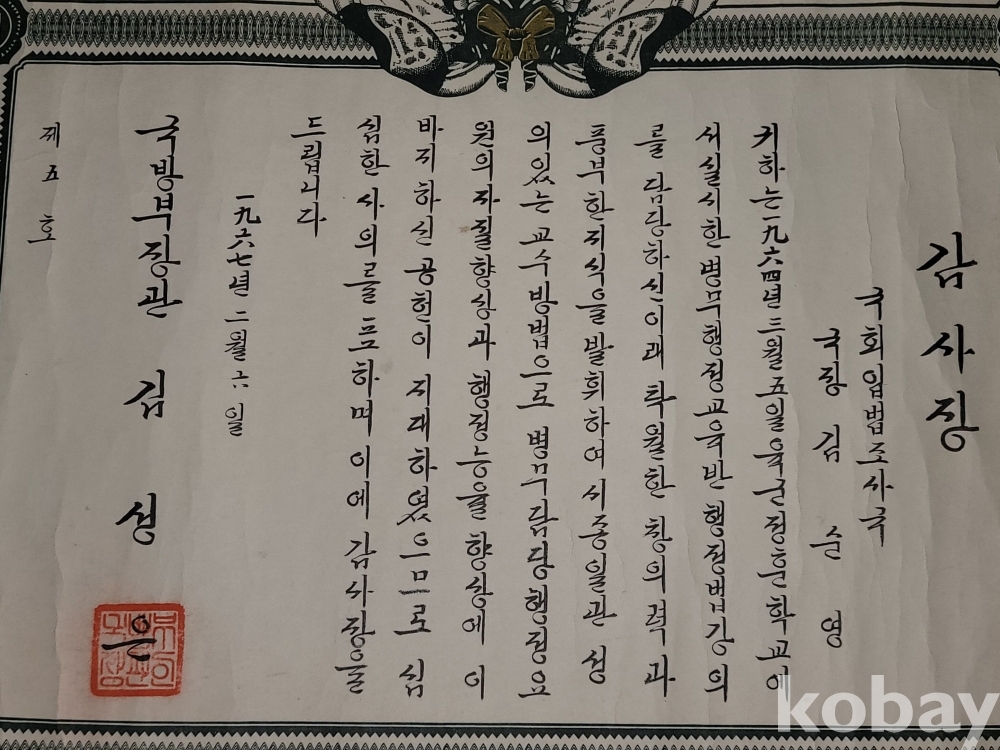 감사장
국회입법조사국
국장 김순영
귀하는 一九六四년 三월 五일 육군정훈학교에
서 실시한 병무행정교육반 행정법강의
를 담당하신 이래 탁월한 창의력과
풍부한 지식을 발휘하여 시종일관 성
의있는 교수방법으로 병무담당행정요
원의 자질향상과 행정능률향상에 이
바지하신 공헌이 지대하였으므로 심
심한 사의를 표하며 이에 감사장을
드립니다
一九六七년 二월 六일
국방부장관 김성은
제 五 호
kobay